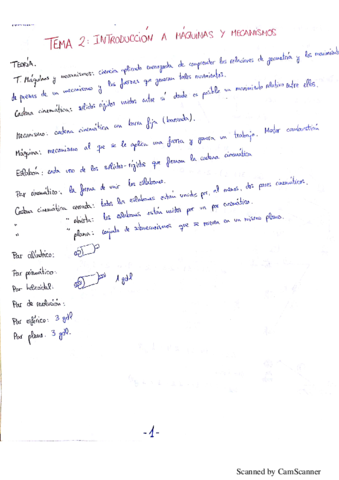 TEMA 2: INTRODUCCIÓN A MÁQUINAS Y MECANISMOS
TEORÍA.
T. Máquinas y mecanismos: ciencia aplicada encargada de comprender las relaciones de geometría y los movimientos
de piezas de un mecanismo y las fuerzas que generan tales movimientos.
Cadena cinemática: sólidos rígidos unidos entre sí donde es posible un movimiento relativo entre ellos.
Mecanismo: cadena cinemática con barra fija (bancada).
Máquina: mecanismo al que se le aplica una fuerza y genera un trabajo. Motor combustión
Eslabón: cada uno de los sólidos rígidos que forman la cadena cinemática
Par cinemático: la forma de unir los eslabones.
Cadena cinemática cerrada: todos los eslabones están unidos por, al menos, dos pares cinemáticos.
" " abierta: los eslabones están unidos por un par cinemático.
" " plana: conjunto de mecanismos que se mueven en un mismo plano.
Par cilíndrico:
Par prismático:
Par helicoidal: 1 gdl
Par de revolución:
Par esférico: 3 gdl
Par plano: 3 gdl.
-1-
Scanned by CamScanner